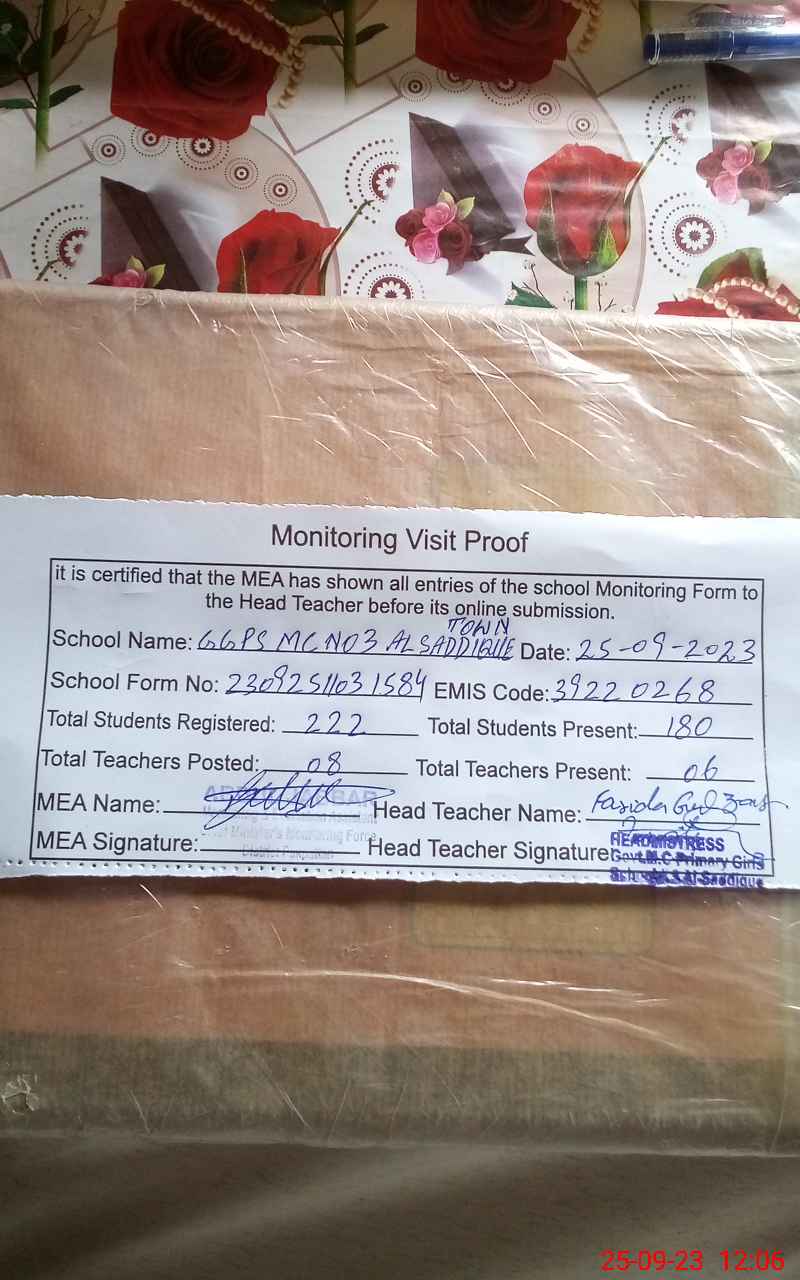 Monitoring Visit Proof
it is certified that the MEA has shown all entries of the school Monitoring Form to
the Head Teacher before its online submission.
School Name: GGPS MC NO3 AL SADDIQUE TOWN Date: 25-09-2023
School Form No: EMIS Code: 39220268
Total Students Registered: 222 Total Students Present: 180
Total Teachers Posted: 08 Total Teachers Present: 06
MEA Name: Head Teacher Name:
MEA Signature: Head Teacher Signature
HEADMISTRESS
Govt.M.C Primary Girls
Al-Saddique
25-09-23 12:06